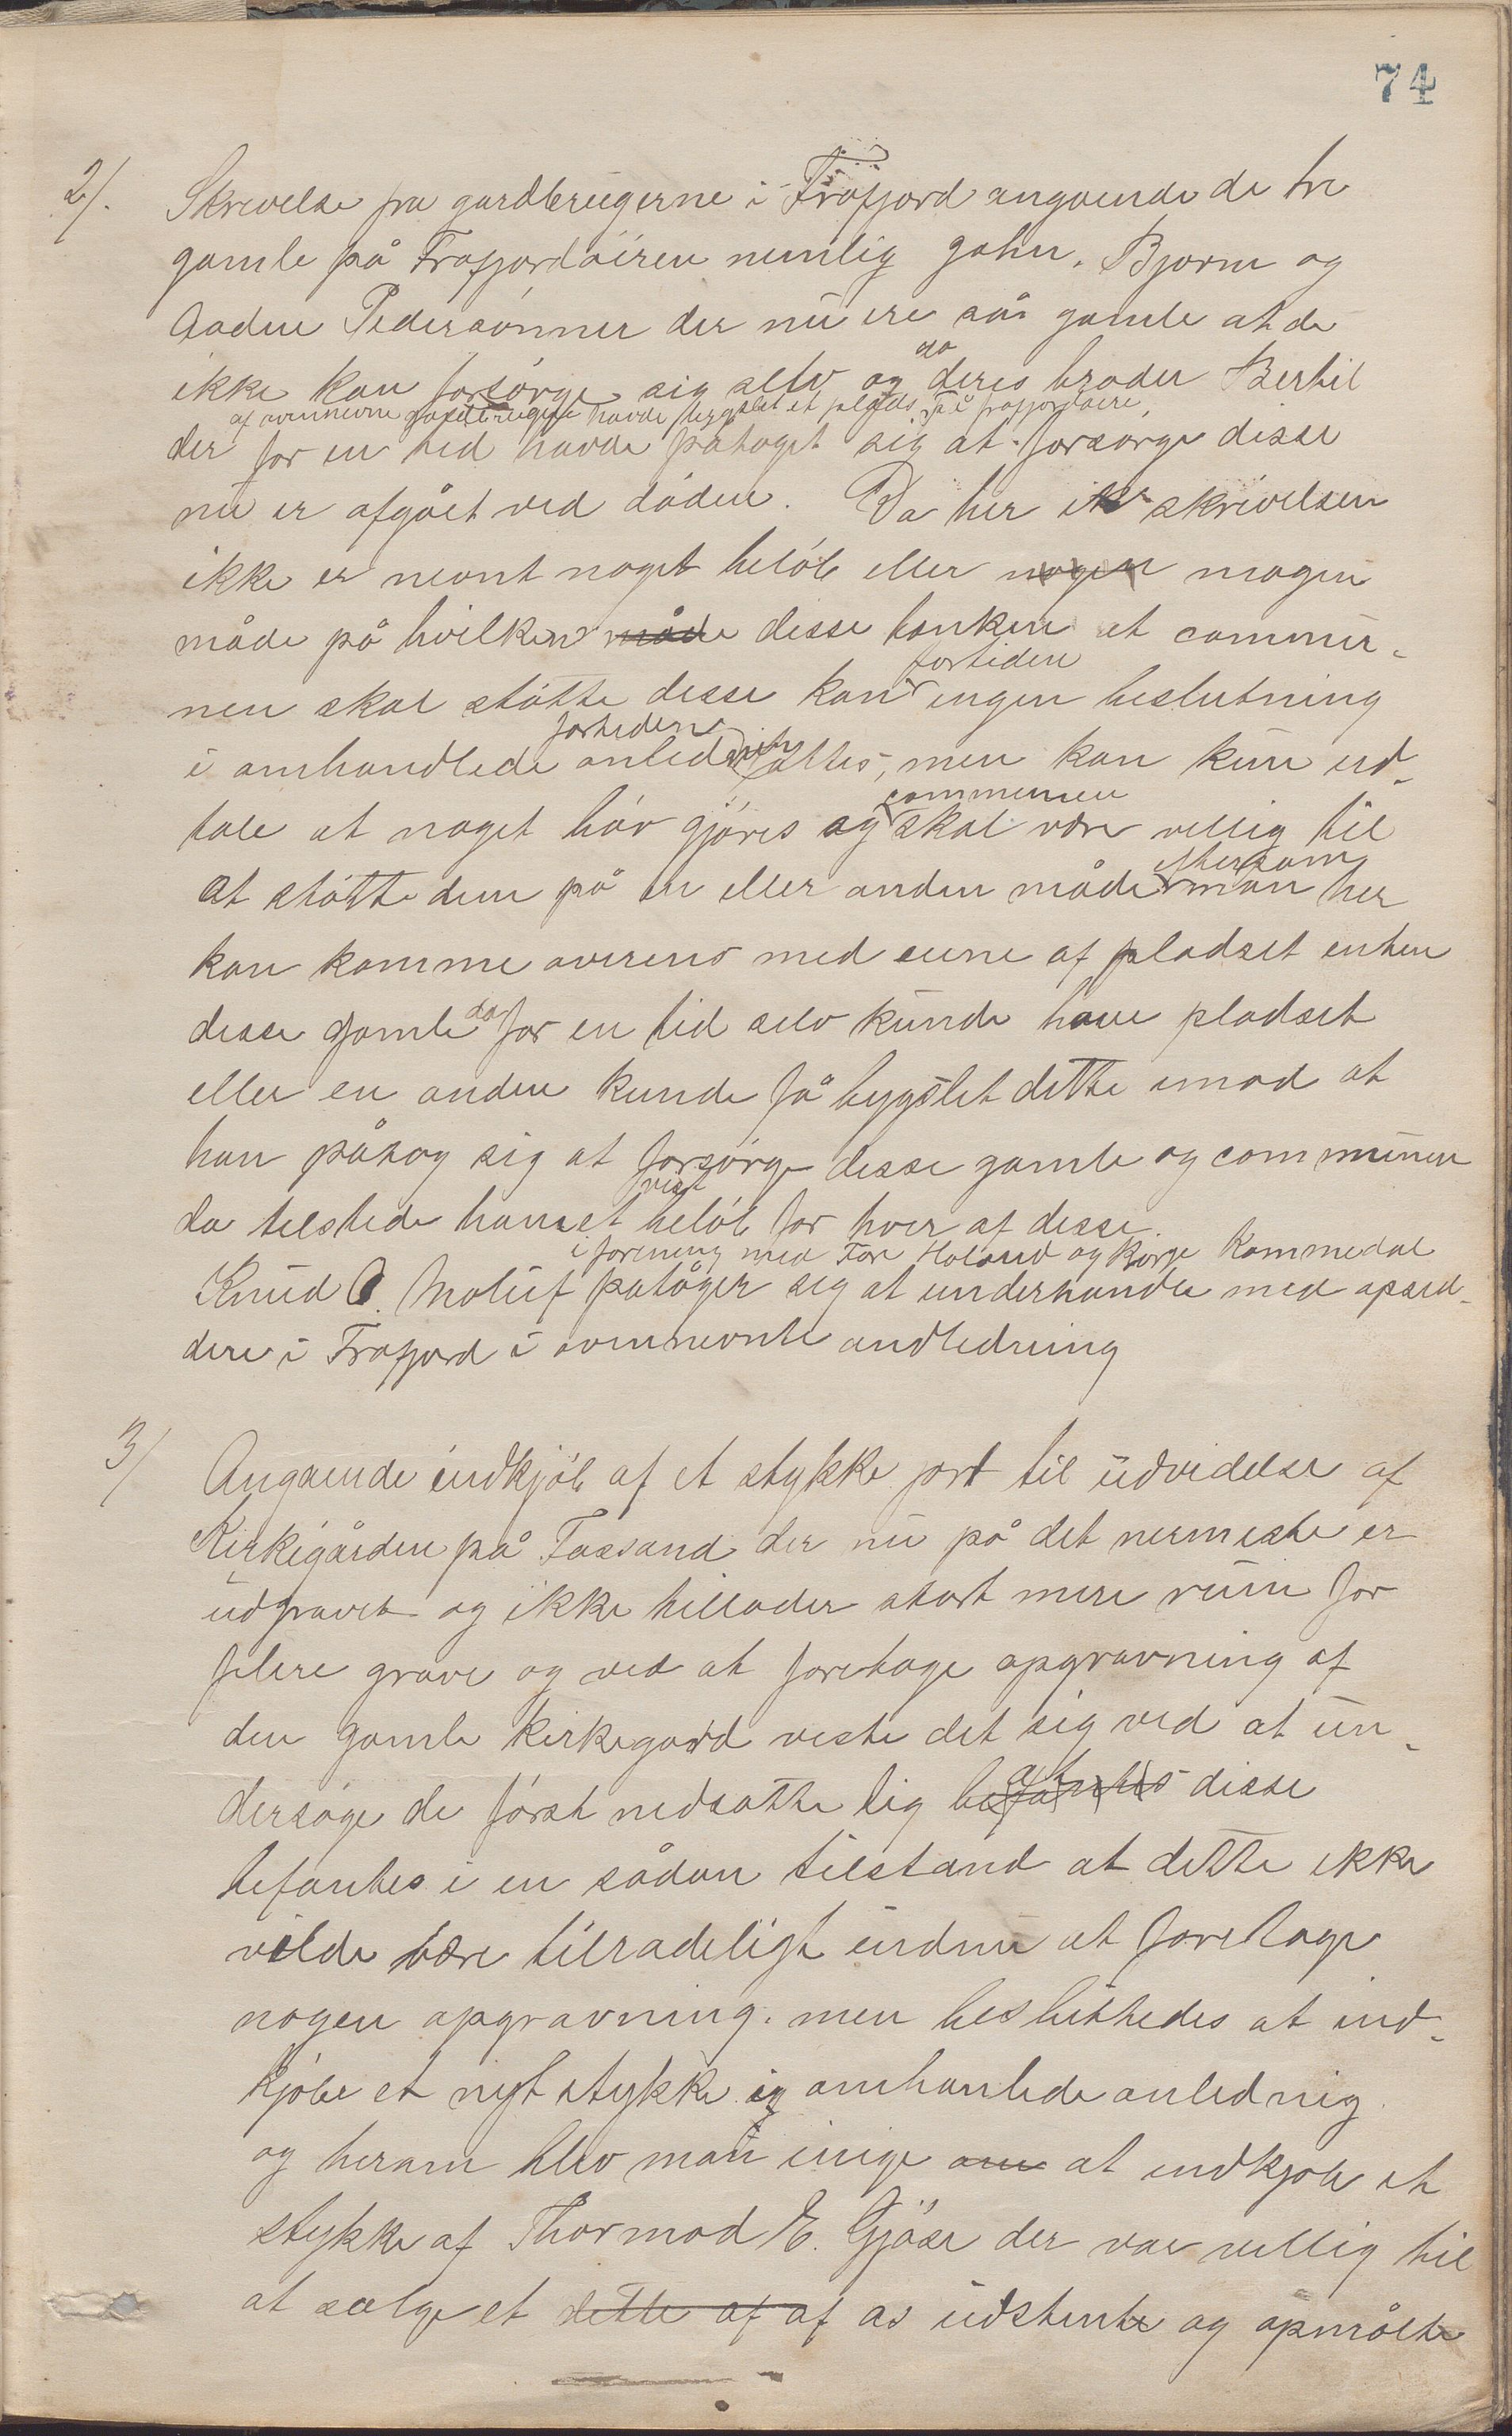 74
2/. Skrivelse fra gardbrugerne i Frafjord angaende de tre
gamle på Frafjordøiren nemlig John, Bjorne og
Aadne Pedersönner der nu ere så gamle at de
da
ikke kan forsörge sig selv og deres broder Bertil
af ovennevne gardbrugere havde bygslet et plads på frafjordøire,
der for en tid havde påtaget sig at forsorge disse
nu er afgået ved döden. Da her i skrivelsen
ikke er nevnt noget belöb eller nogen nogen
måde på hvilken måde disse tanken at commu-
fortiden
nen skal stötte desse kan ingen beslutning
fortiden
i omhandlede anledn fattes, men kan kun ud-
communen
tale at noget bör gjöres og skal være villig til
eftersom
at stötte dem på en eller anden måde man her
kan komme overens med eierne af pladset enten
da
desse gamle for en tid selv kunde have pladset
eller en anden kunde få bygslet dette imod at
han påtog sig at forsörge desse gamle og communen
vist
da tilstede ham et belöb for hver af desse.
i forening med Tore Holand og Börge Kommedal
Knud O. Moluf patager sig at underhandle med opsid-
dere i Frafjord i ovennevnte andledning
3/ Angaende indkjöb af et stykke jord til udvidelse af
Kirkegården på Fossand der nu på det nermeste er
udgravet og ikke tillader stort mere rum for
flere grave og ved at foretage opgravning af
den gamle kirkegard viste det sig ved at un-
at
dersöge de först nedsatte lig befantes disse
befantes i en sådan tilstand at dette ikke
vilde være tilradeligt endnu at foretage
nogen opgravning. men besluttedes at ind-
kjöbe et nyt stykke i omhanlede anlednig
og herom blev man enige om at indkjöbe et
stykke af Thormod E. Gjöse der var villig til
at sælge et dette af af os udstenkte og opmålte